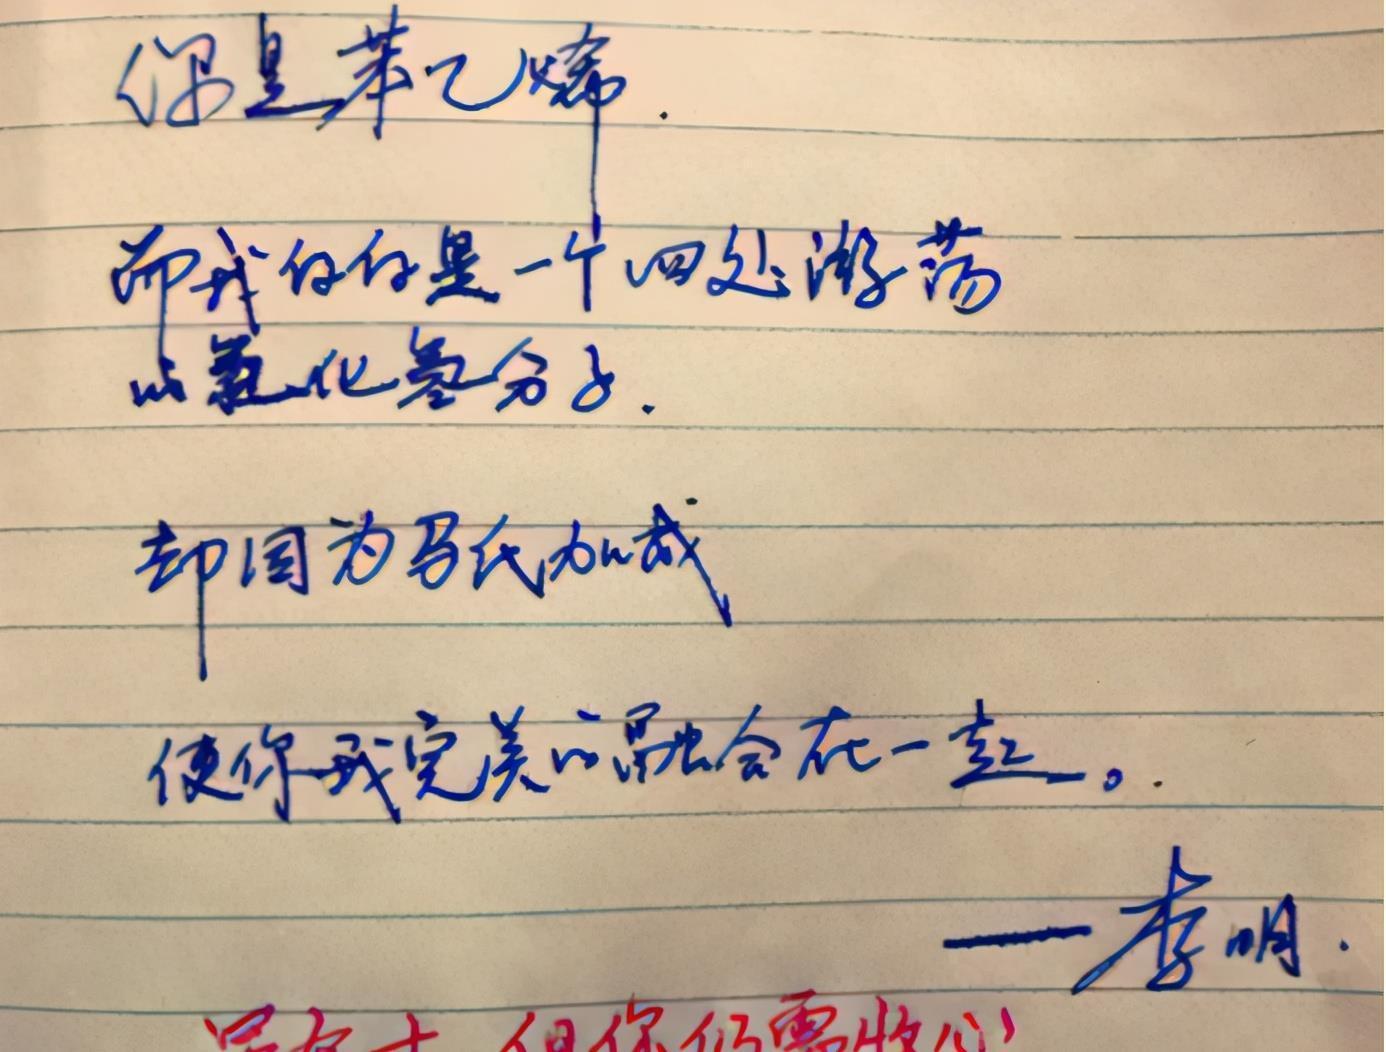 你是苯乙烯.
而我仅仅是一个四处游荡
的氯化氢分子.
却因为马氏加成
使你我完美的融合在一起。.
——李明.
但你仍需收心